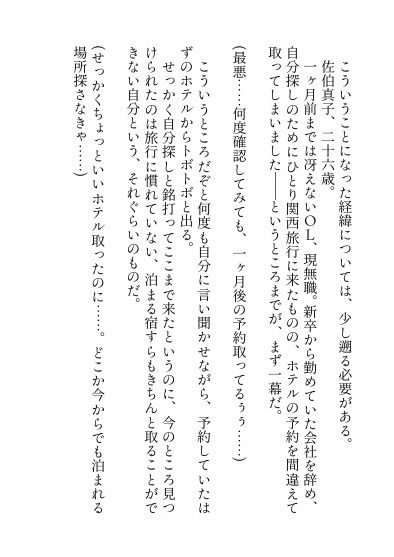 こういうことになった経緯については、少し遡る必要がある。
　佐伯真子、二十六歳。
　一ヶ月前までは冴えないＯＬ、現無職。新卒から勤めていた会社を辞め、
自分探しのためにひとり関西旅行に来たものの、ホテルの予約を間違えて
取ってしまいました――というところまでが、まず一幕だ。
(最悪……何度確認してみても、一ヶ月後の予約取ってるぅぅ……)
　こういうところだぞと何度も自分に言い聞かせながら、予約していたは
ずのホテルからトボトボと出る。
　せっかく自分探しと銘打ってここまで来たというのに、今のところ見つ
けられたのは旅行に慣れていない、泊まる宿すらもきちんと取ることがで
きない自分という、それぐらいのものだ。
(せっかくちょっといいホテル取ったのに……。どこか今からでも泊まれる
場所探さなきゃ……)